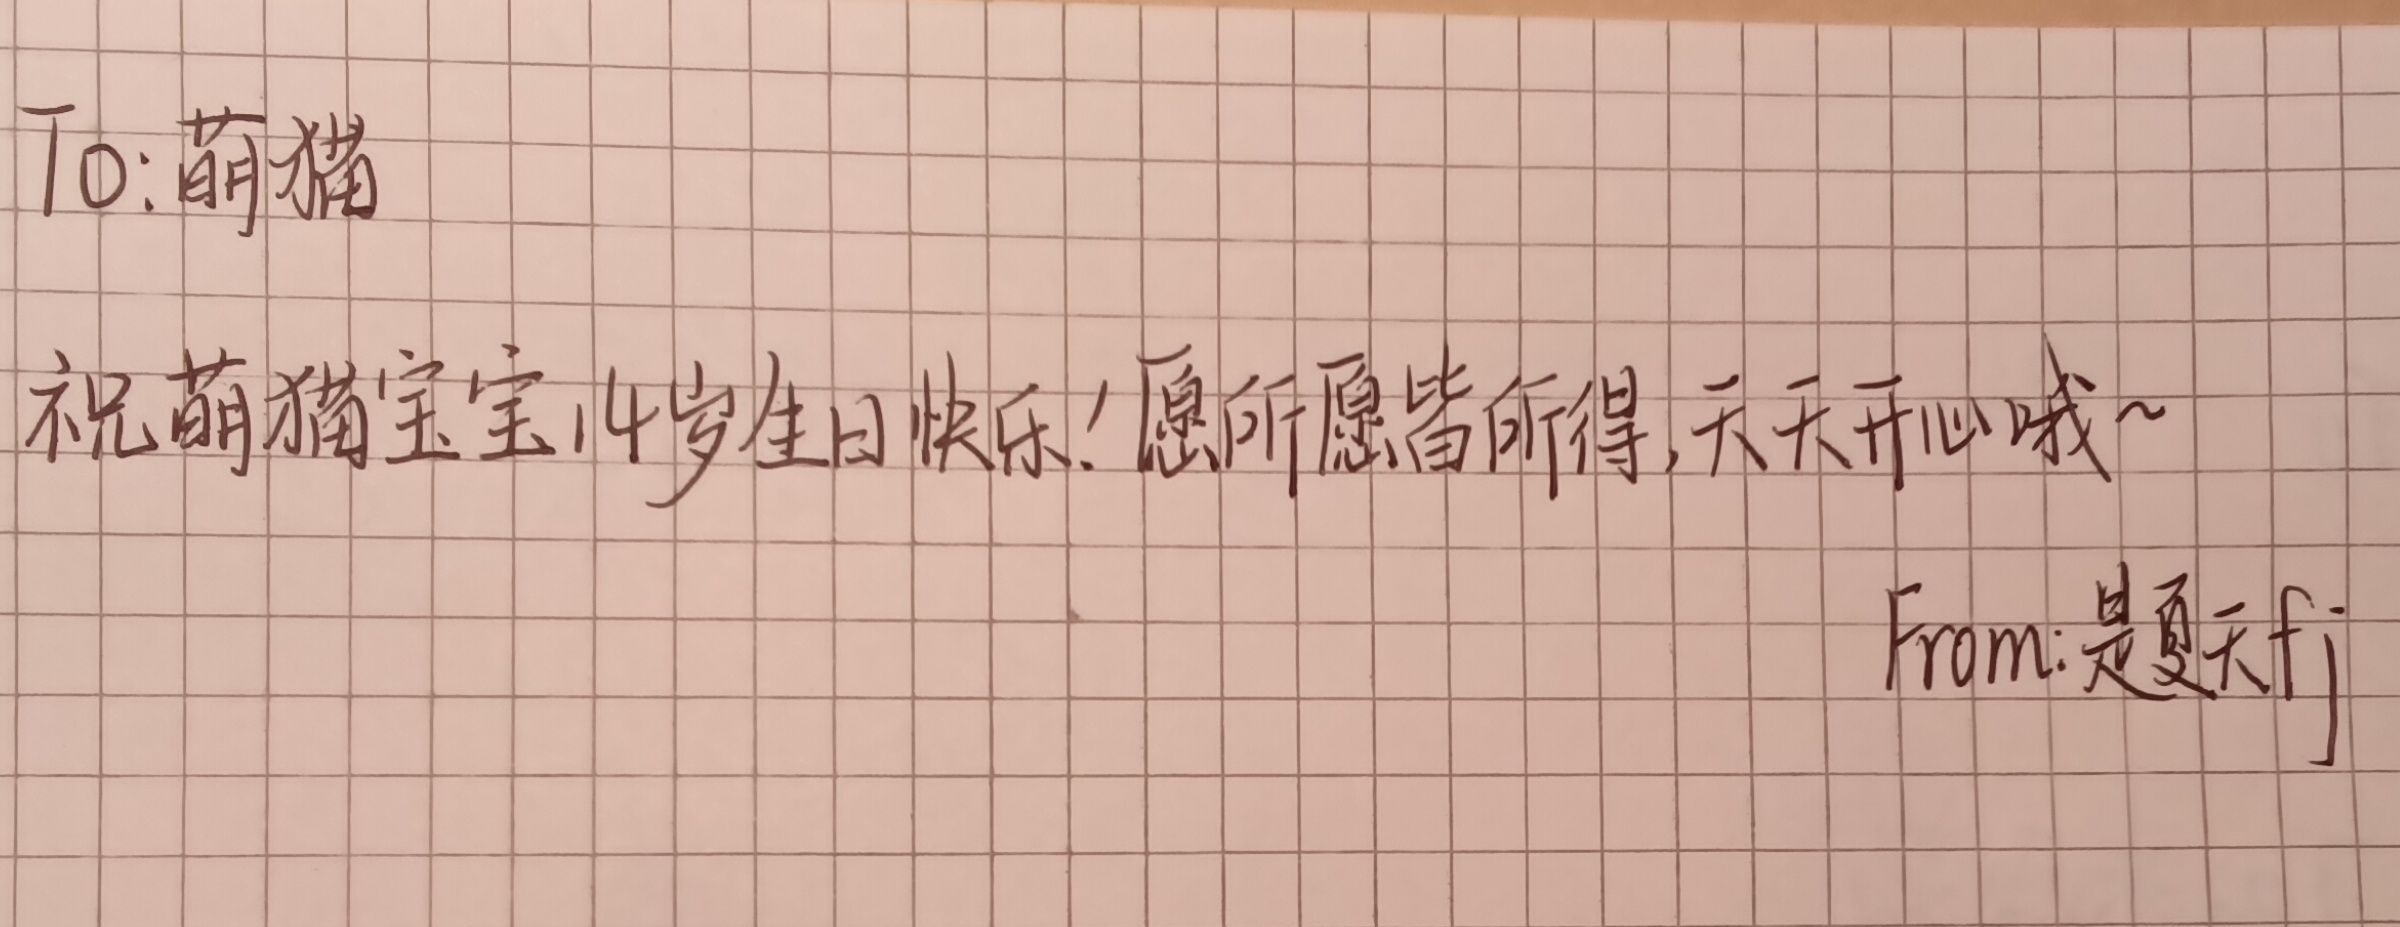 To:萌猫
祝萌猫宝宝14岁生日快乐!愿所愿皆所得,天天开心哦~
From:是夏天fj